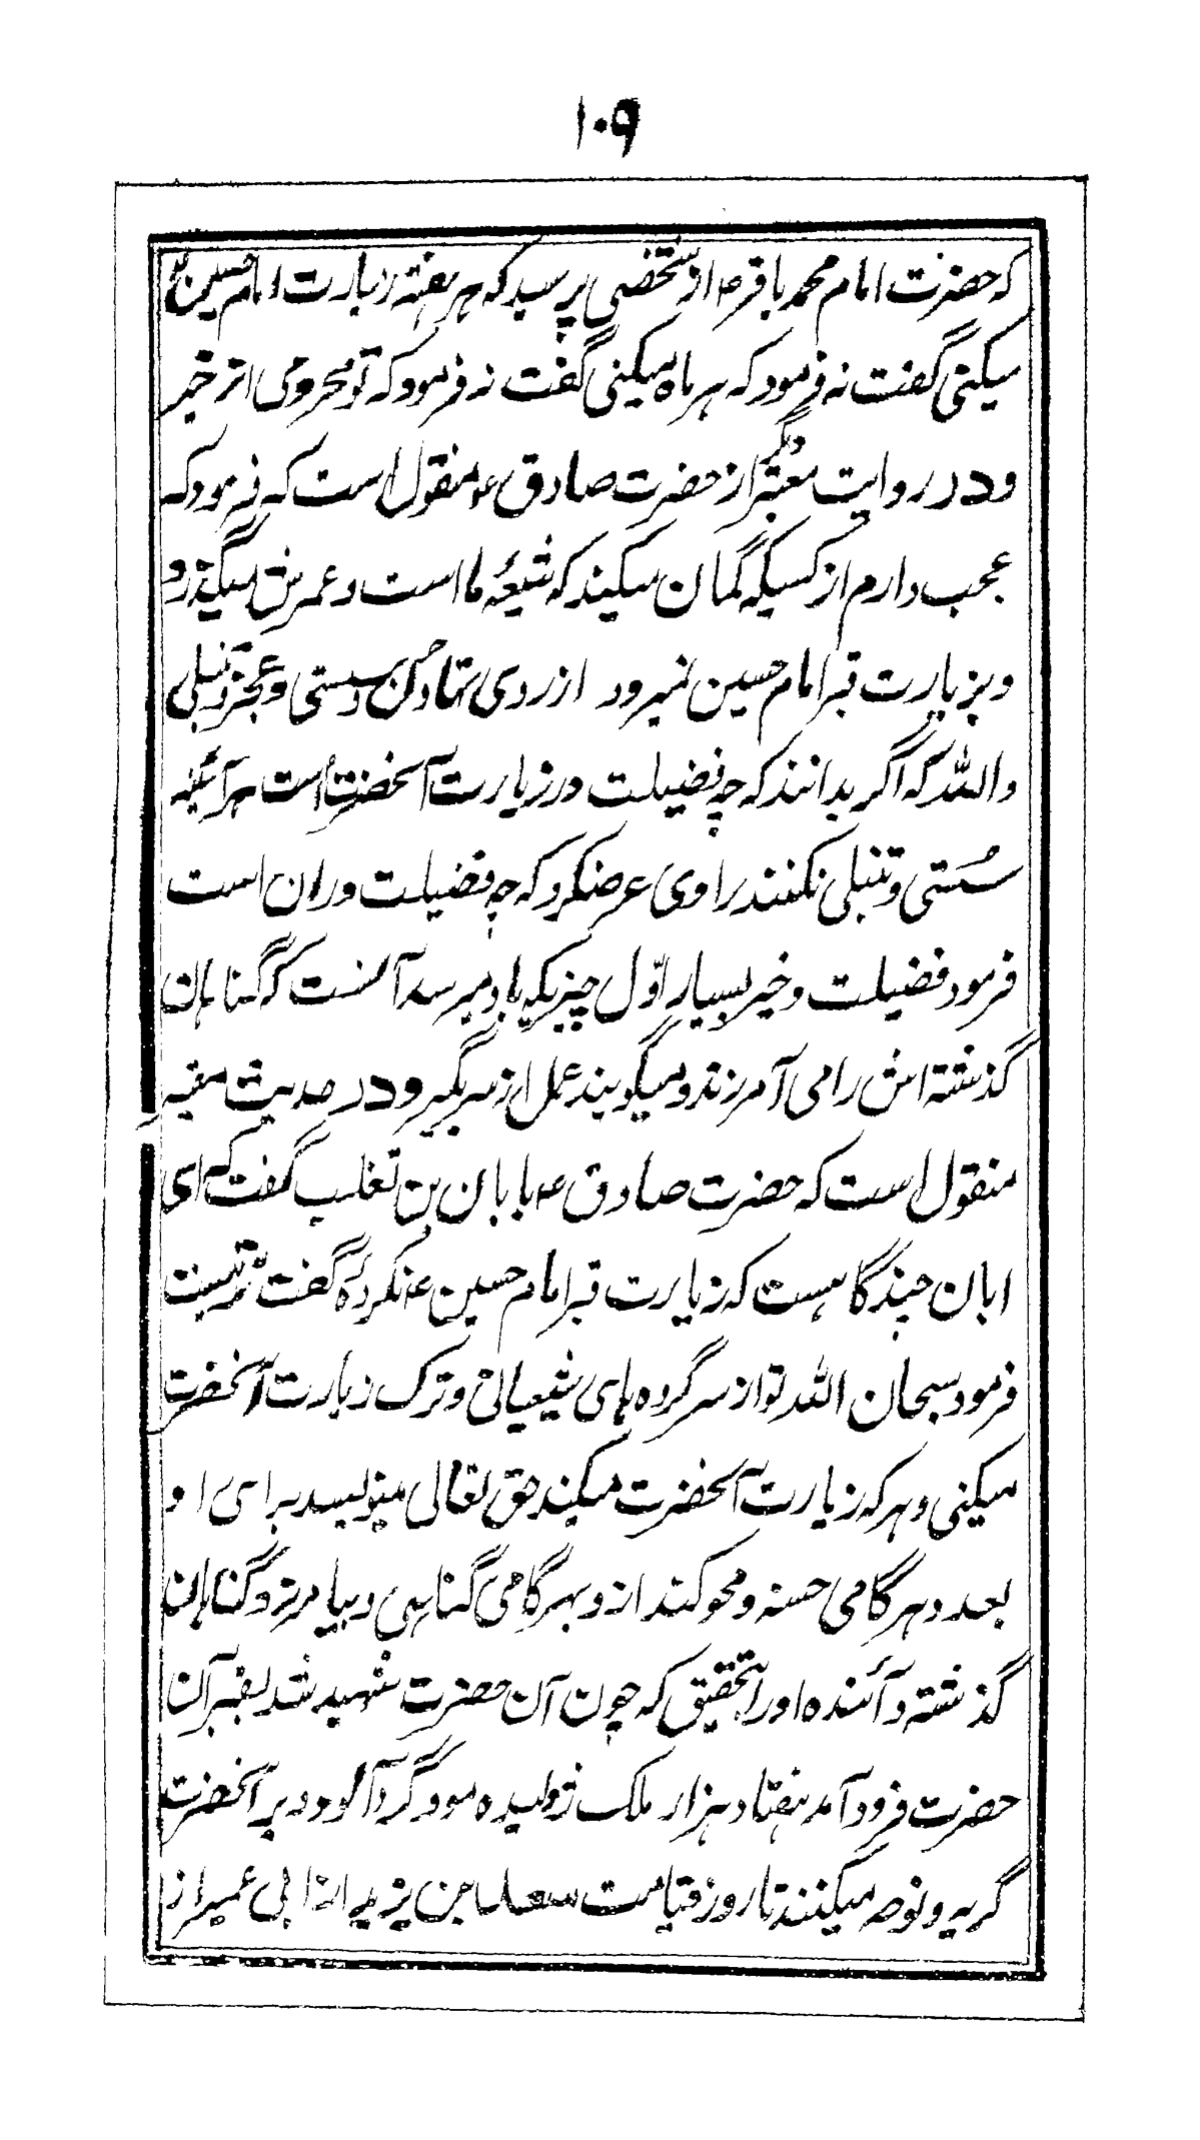 ۱۰۹
که حضرت امام محمد باقر ع از شخصی پرسید که هر هفته زیارت امام حسین ع
میکنی گفت نه فرمود که هر ماه میکنی گفت نه فرمود که تو محرومی از خیر
و در روایت معتبر دیگر از حضرت صادق ع منقول است که فرمود که
عجب دارم از کسیکه گمان میکند که شیعۀ ما است و عمرش میگذرد
و بزیارت قبر امام حسین نمیرود از روی تهاون و سستی و عجز و تنبلی
واللّه که اگر بدانند که چه فضیلت در زیارت آنحضرت است هر آئینه
سُستی و تنبلی نکنند راوی عرضکرد که چه فضیلت در ان است
فرمود فضیلت و خیر بسیار اوّل چیزیکه باو میرسد آنست که گناهان
گذشته اش را می آمرزند و میگویند عمل از سر بگیر و در حدیث معتبر
منقول است که حضرت صادق ع بابان بن تغلب گفت که ای
ابان چند گاهست که زیارت قبر امام حسین ع نکرده گفت
فرمود سبحان اللّه تو از سر گروه های شیعیانی و ترک زیارت آنحضرت
میکنی و هر که زیارت آنحضرت میکند حق تعالی مینویسد برای او
بعدد هر گامی حسنه و محو کند از و بهر گامی گناهی و بیامرزد گناهان
گذشته و آئنده او را بتحقیق که چون آن حضرت شهید شد بقبر آن
حضرت فرود آمد هفتاد هزار ملک ژولیده مو و گرد آلوده بر آنحضرت
گریه و نوحه میکنند تا روز قیامت بن یزید ابن ابی عمیر از